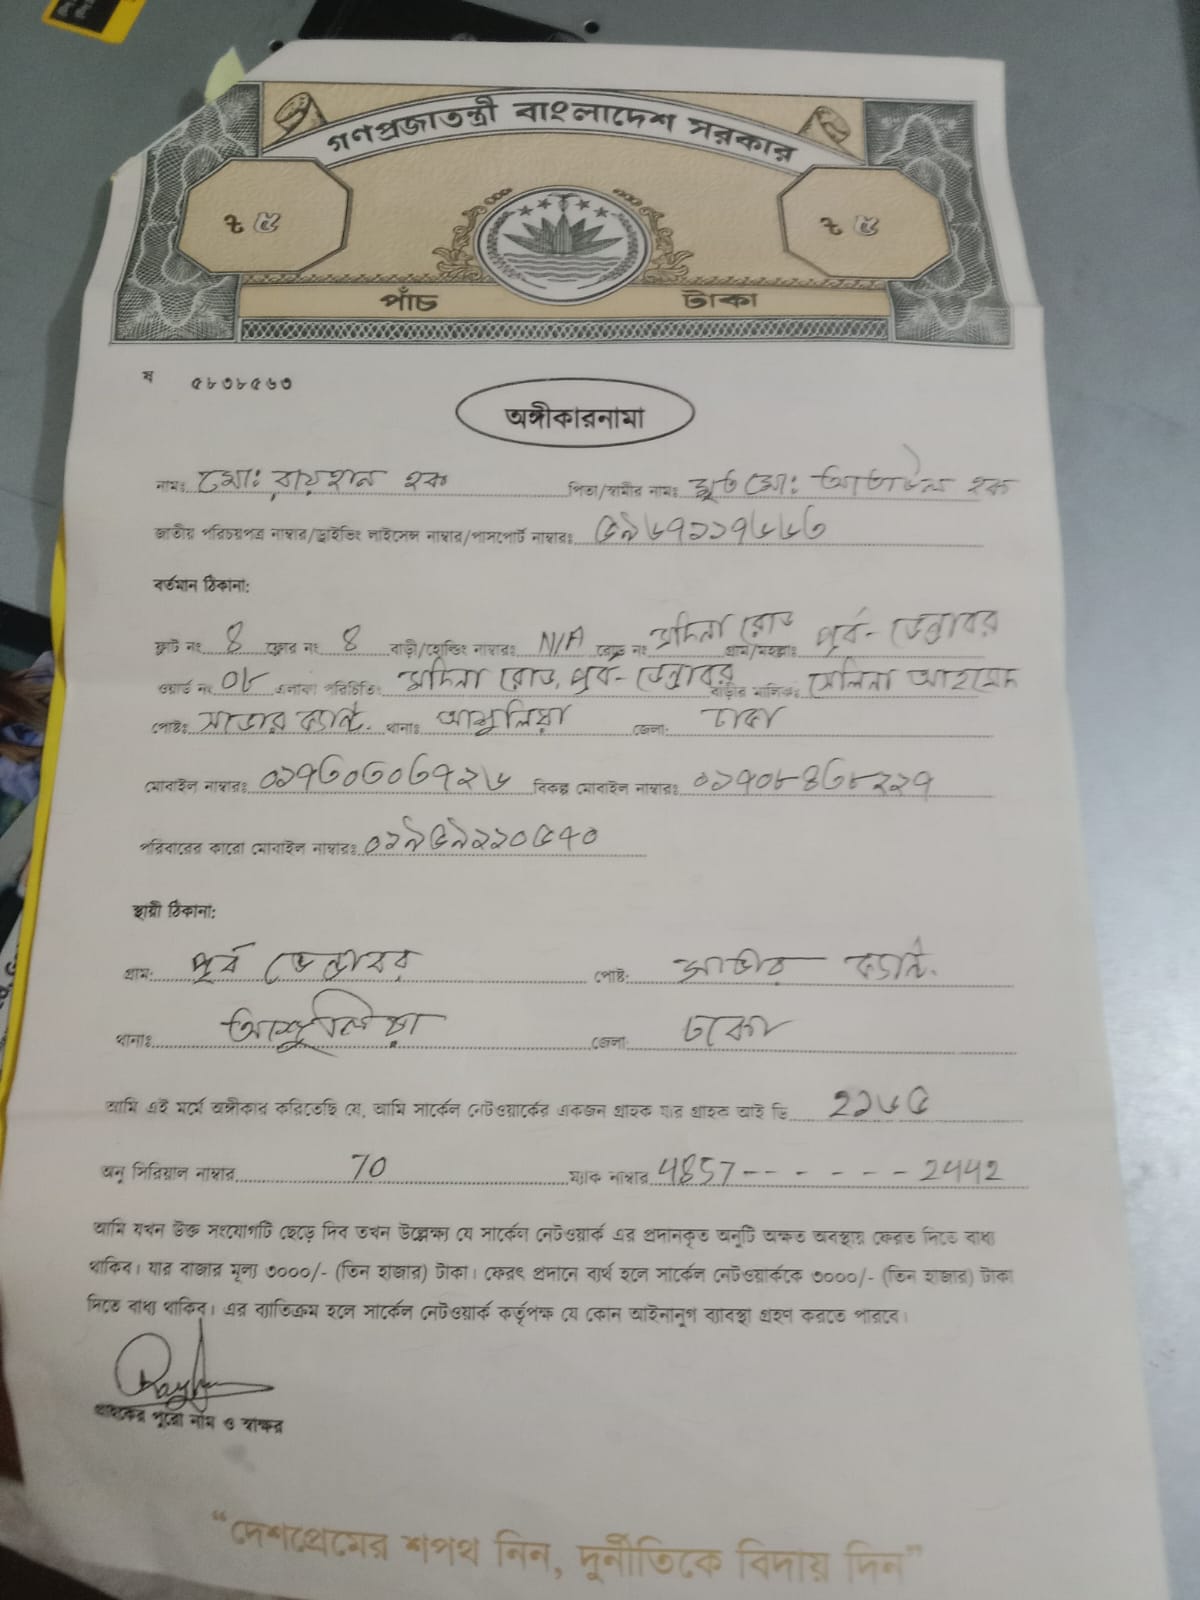 গণপ্রজাতন্ত্রী বাংলাদেশ সরকার
৳ ৫ ৳ ৫
পাঁচ টাকা
ষ ৫৮৩৮৫৬৩
অঙ্গীকারনামা
নামঃ মোঃ রায়হান হক পিতা/স্বামীর নামঃ মৃত মোঃ আতাউল হক
জাতীয় পরিচয়পত্র নাম্বার/ড্রাইভিং লাইসেন্স নাম্বার/পাসপোর্ট নাম্বারঃ ৫৯৬৭১১৭৬৬৩
বর্তমান ঠিকানা:
ফ্লাট নং 4 ফ্লোর নং 4 বাড়ী/হোল্ডিং নাম্বারঃ N/A রোড নং মদিনা রোড গ্রাম/মহল্লাঃ পূর্ব- ডেন্ডাবর
ওয়ার্ড নং ০৮ এলাকা পরিচিতিঃ মদিনা রোড, পূর্ব- ডেন্ডাবর বাড়ীর মালিকঃ সেলিনা আহমেদ
পোষ্টঃ সাভার ক্যান্ট. থানাঃ আশুলিয়া জেলা: ঢাকা
মোবাইল নাম্বারঃ ০১৭৩০৩০৩৭২৬ বিকল্প মোবাইল নাম্বারঃ ০১৭০৮৪৩৮২২৭
পরিবারের কারো মোবাইল নাম্বারঃ ০১৯৫৯২২০৫৭০
স্থায়ী ঠিকানা:
গ্রাম: পূর্ব ডেন্ডাবর পোষ্ট: সাভার ক্যান্ট.
থানাঃ আশুলিয়া জেলা: ঢাকা
আমি এই মর্মে অঙ্গীকার করিতেছি যে, আমি সার্কেল নেটওয়ার্কের একজন গ্রাহক যার গ্রাহক আই ডি ২১৬৫
অনু সিরিয়াল নাম্বার 70 ম্যাক নাম্বার 4857-- - - - - -2442
আমি যখন উক্ত সংযোগটি ছেড়ে দিব তখন উল্লেক্ষ্য যে সার্কেল নেটওয়ার্ক এর প্রদানকৃত অনুটি অক্ষত অবস্থায় ফেরত দিতে বাধ্য
থাকিব। যার বাজার মূল্য ৩০০০/- (তিন হাজার) টাকা। ফেরৎ প্রদানে ব্যর্থ হলে সার্কেল নেটওয়ার্ককে ৩০০০/- (তিন হাজার) টাকা
দিতে বাধ্য থাকিব। এর ব্যাতিক্রম হলে সার্কেল নেটওয়ার্ক কর্তৃপক্ষ যে কোন আইনানুগ ব্যাবস্থা গ্রহণ করতে পারবে।
গ্রাহকের পুরো নাম ও স্বাক্ষর
“দেশপ্রেমের শপথ নিন, দুর্নীতিকে বিদায় দিন”